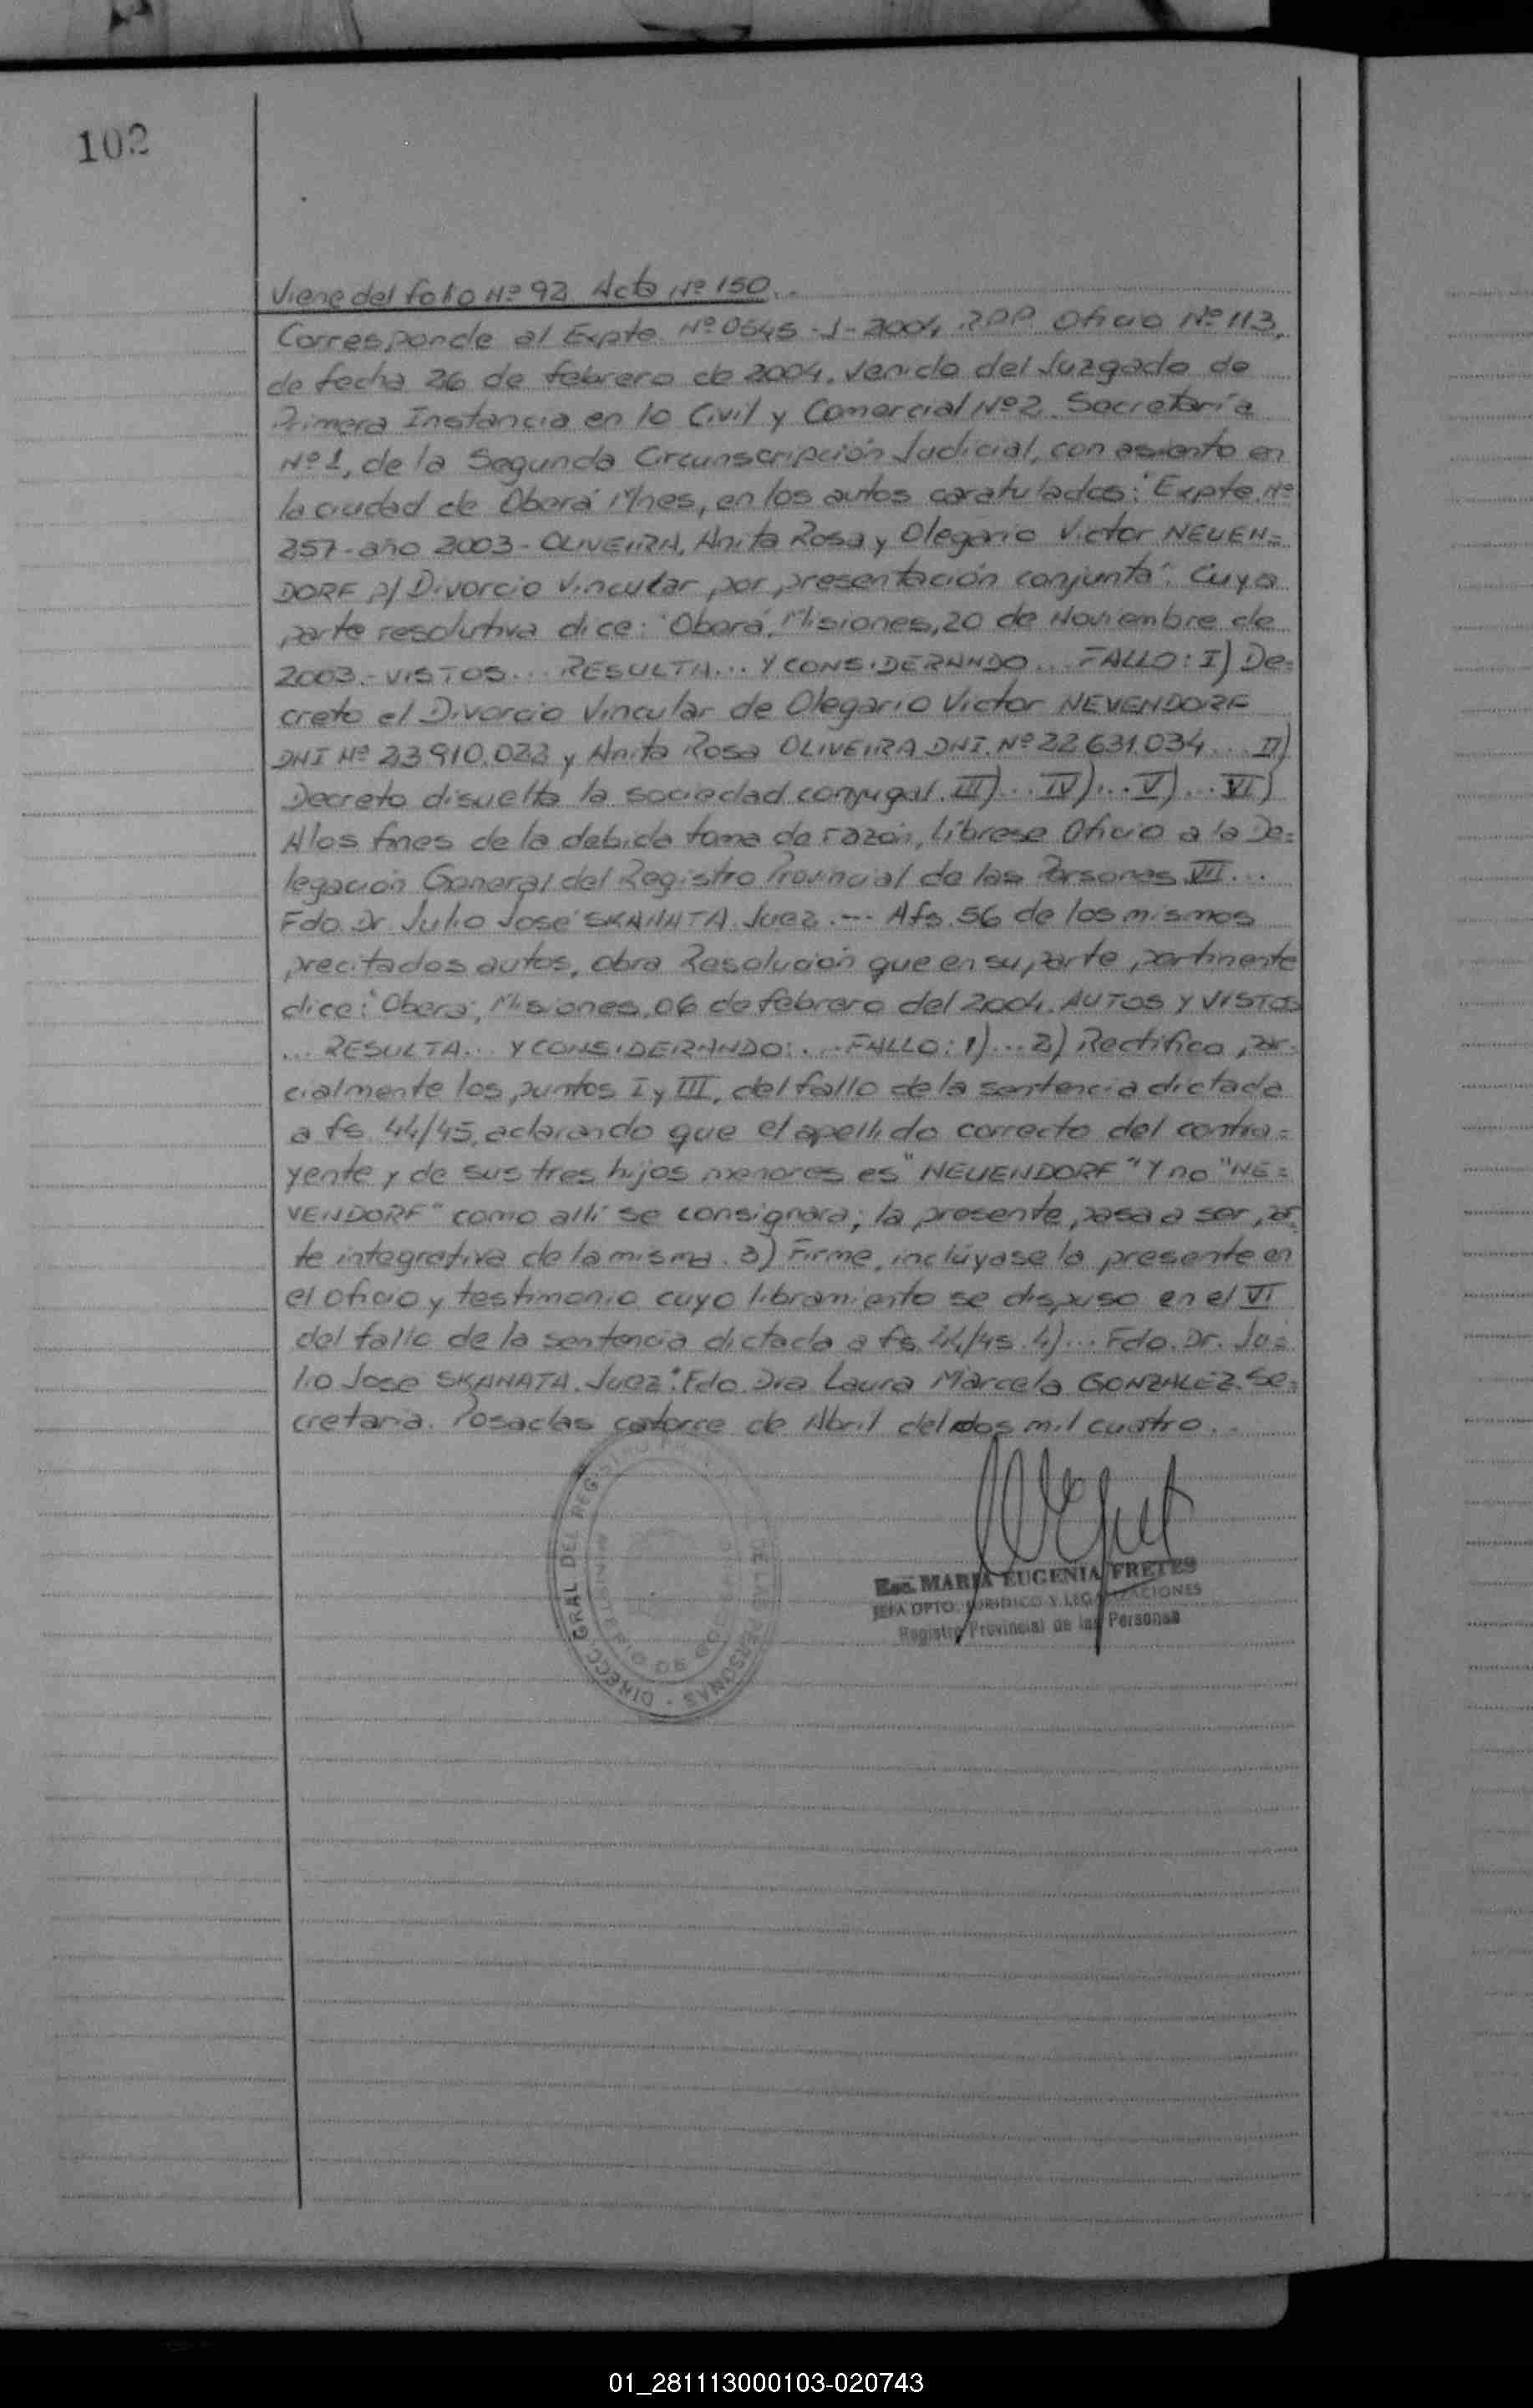 102
Viene del folio Nº 92 Acta Nº 150..
Corresponde al Expte. Nº 0545-J-2004, RPP Oficio Nº 113,
de fecha 26 de febrero de 2004, venido del Juzgado de
Primera Instancia en lo Civil y Comercial Nº 2. Secretaría
Nº 1, de la Segunda Circunscripción Judicial, con asiento en
la ciudad de Oberá Mnes, en los autos caratulados: "Expte. Nº
257-año 2003- OLIVEIRA, Anita Rosa y Olegario Victor NEUEN=
DORF p/ Divorcio Vincular por presentación conjunta". Cuya
parte resolutiva dice: "Oberá, Misiones, 20 de Noviembre de
2003.- VISTOS... RESULTA... Y CONSIDERANDO... FALLO: I) De=
creto el Divorcio Vincular de Olegario Victor NEVENDORF
DNI Nº 23.910.022 y Anita Rosa OLIVEIRA DNI. Nº 22.631.034... II)
Decreto disuelta la sociedad conyugal. III)... IV)... V)... VI)
A los fines de la debida toma de razón, líbrese Oficio a la De=
legación General del Registro Provincial de las Personas VII...
Fdo. Dr. Julio José SKANATA. Juez.--- A fs. 56 de los mismos
precitados autos, obra Resolución que en su parte pertinente
dice: "Oberá, Misiones, 06 de febrero del 2004. AUTOS Y VISTOS
... RESULTA... Y CONSIDERANDO:... FALLO: 1)... 2) Rectifico par-
cialmente los puntos I y III, del fallo de la sentencia dictada
a fs. 44/45, aclarando que el apellido correcto del contra=
yente y de sus tres hijos menores es "NEUENDORF" Y no "NE=
VENDORF" como allí se consignara; la presente pasa a ser par
te integrativa de la misma. 3) Firme, inclúyase la presente en
el oficio y testimonio cuyo libramiento se dispuso en el VI
del fallo de la sentencia dictada a fs. 44/45. 4)... Fdo. Dr. Ju=
lio Jose SKANATA. Juez". Fdo. Dra Laura Marcela GONZALEZ. Se=
cretaria. Posadas catorce de Abril del dos mil cuatro..
DIRECC GRAL DEL REGISTRO DE LAS PERSONAS
MINISTERIO DE GOBIERNO
Esc. MARIA EUGENIA FRETES
JEFA DPTO. JURIDICO Y LEGALIZACIONES
Registro Provincial de las Personas
01_281113000103-020743